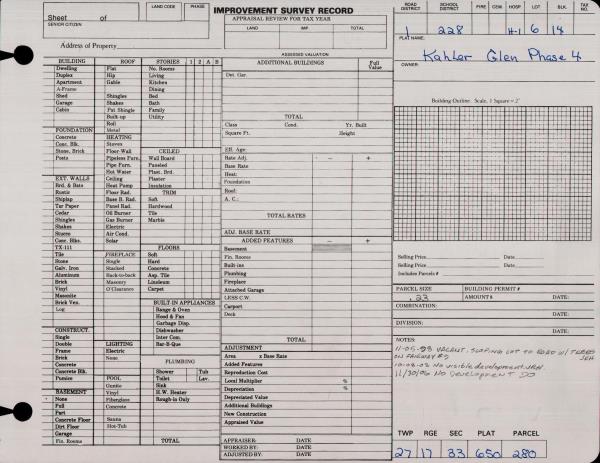 IMPROVEMENT SURVEY RECORD
Sheet of
SENIOR CITIZEN
LAND CODE PHASE
APPRAISAL REVIEW FOR TAX YEAR
LAND IMP. TOTAL
ASSESSED VALUATION
Address of Property
ROAD DISTRICT SCHOOL DISTRICT FIRE CEM. HOSP. LOT BLK. TAX NO.
228 H-1 6 14
PLAT NAME:
Kahler Glen Phase 4
OWNER:
BUILDING ROOF STORIES 1 2 A B
Dwelling Flat No. Rooms
Duplex Hip Living
Apartment Gable Kitchen
A-Frame Dining
Shed Shingles Bed
Garage Shakes Bath
Cabin Pat Shingle Family
Built-up Utility
Roll
FOUNDATION Metal
Concrete HEATING
Conc. Blk. Stoves CEILED
Stone, Brick Floor Wall Wall Board
Posts Pipeless Furn. Paneled
Pipe Furn. Plast. Brd.
Hot Water Plaster
EXT. WALLS Ceiling Insulation
Brd. & Bats Heat Pump
Rustic Floor Rad. TRIM
Shiplap Base B. Rad. Soft
Tar Paper Panel Rad. Hardwood
Cedar Oil Burner Tile
Shingles Gas Burner Marble
Shakes Electric
Stucco Air Cond.
Conc. Blks. Solar
TX-111 FLOORS
Tile FIREPLACE Soft
Stone Single Hard
Galv. Iron Stacked Concrete
Aluminum Back-to-back Asp. Tile
Brick Masonry Linoleum
Vinyl O'Clearance Carpet
Masonite
Brick Ven. BUILT-IN APPLIANCES
Log Range & Oven
Hood & Fan
Garbage Disp.
CONSTRUCT. Dishwasher
Single Inter Com.
Double LIGHTING Bar-B-Que
Frame Electric
Brick None PLUMBING
Concrete Shower Tub
Concrete Blk. Toilet Lav.
Pumice POOL Sink
Gunite H.W. Heater
BASEMENT Vinyl Rough-in Only
None Fiberglass
Full Concrete
Part
Concrete Floor Sauna
Dirt Floor Hot-Tub
Garage
Fin. Rooms TOTAL
ADDITIONAL BUILDINGS Full Value
Det. Gar.
TOTAL
Class Cond. Yr. Built
Square Ft. Height
Eff. Age:
Rate Adj. - +
Base Rate
Heat:
Foundation
Roof:
A. C.:
TOTAL RATES
ADJ. BASE RATE
ADDED FEATURES - +
Basement
Fin. Rooms
Built-ins
Plumbing
Fireplace
Attached Garage
LESS C.W.
Carport
Deck
TOTAL
ADJUSTMENT
Area x Base Rate
Added Features
Reproduction Cost
Local Multiplier %
Depreciation %
Depreciated Value
Additional Buildings
New Construction
Appraised Value
APPRAISER: DATE
WORKED BY: DATE
ADJUSTED BY: DATE
Building Outline: Scale, 1 Square = 2'
Selling Price Date
Selling Price Date
Includes Parcels #
PARCEL SIZE BUILDING PERMIT #
.23 AMOUNT $ DATE:
COMBINATION: DATE:
DIVISION: DATE:
NOTES:
11-05-98 VACANT, SLOPING LOT TO ROAD W/ TREES
ON FAIRWAY #5 JEH
10-08-02 No visible development JRH
11/30/06 No Development DJ
TWP RGE SEC PLAT PARCEL
27 17 33 650 280